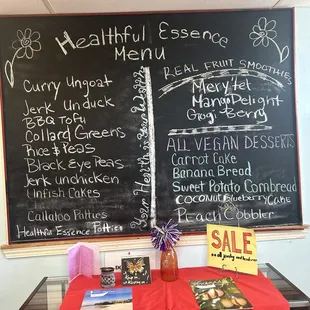 Healthful Essence
Menu
Curry Ungoat
Jerk Unduck
BBQ Tofu
Collard Greens
Rice & Peas
Black eye Peas
Jerk unchicken
Unfish Cakes
Callaloo Patties
Healthful Essence Patties
Your Health is in Your
Real Fruit Smoothies
Mango Delight
Berry
All Vegan Desserts
Carrot Cake
Banana Bread
Sweet Potato Cornbread
Coconut Blueberry Cake
Peach Cobbler
SALE